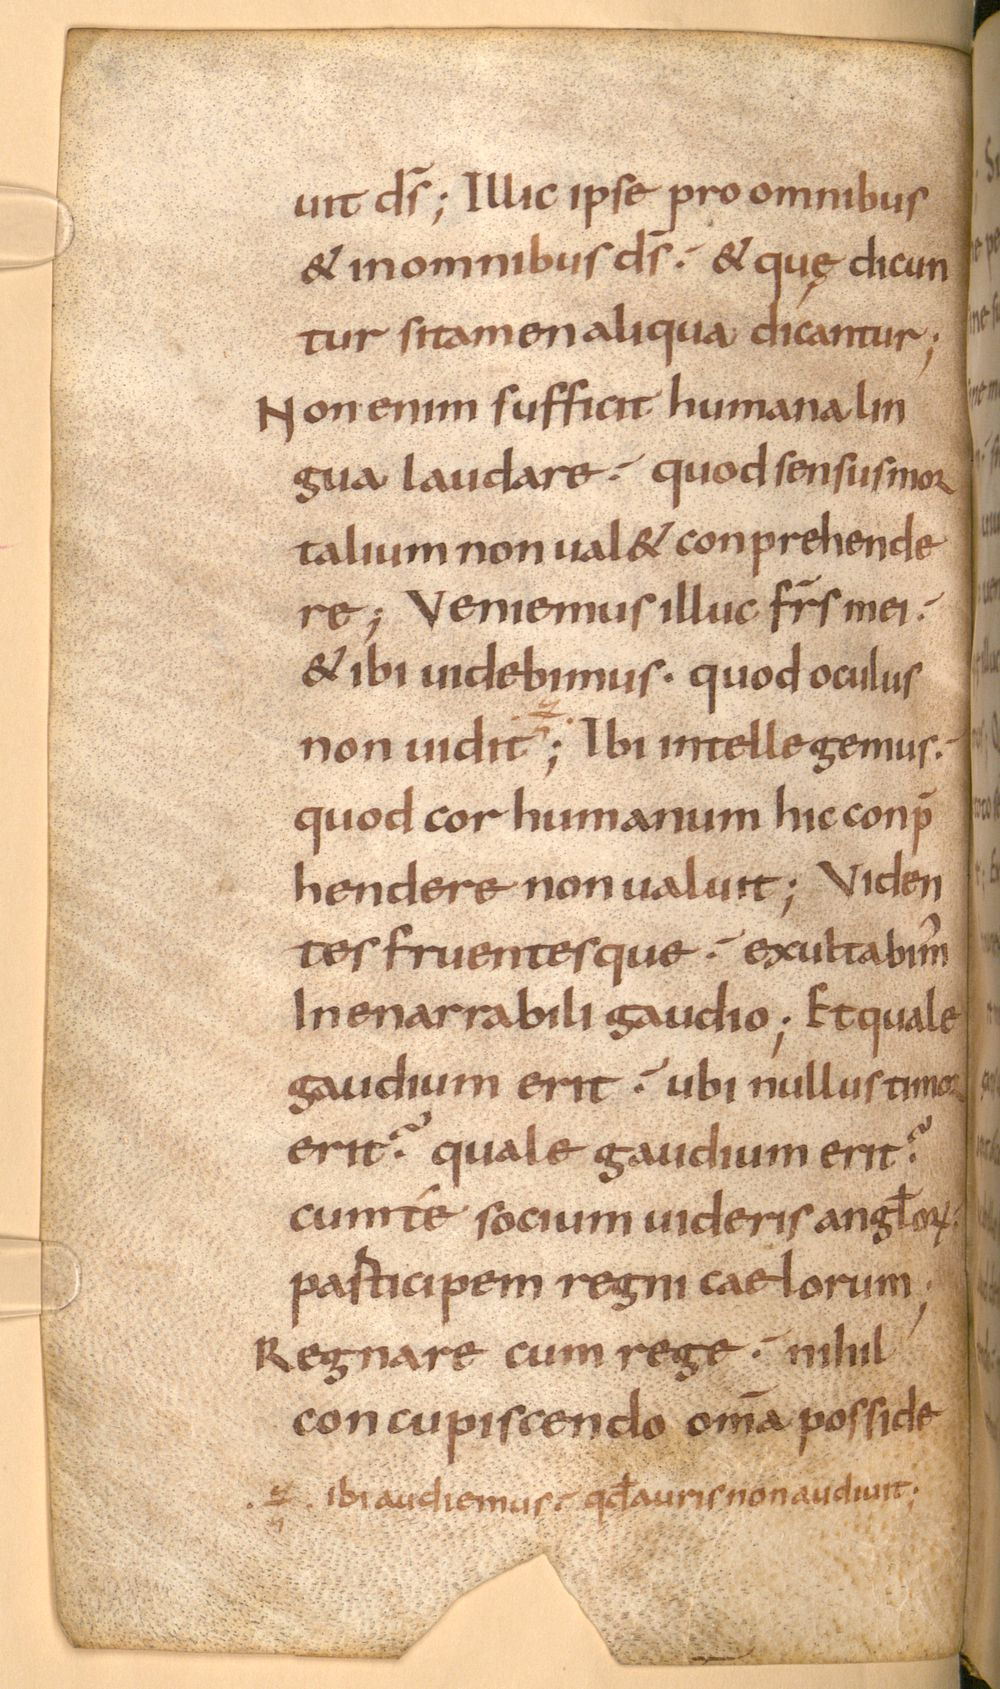 uit ds̄; Illic ipse pro omnibus
& in omnibus ds̄·́ & quę dicun
tur si tamen aliqua dicantur;
Non enim sufficit humana lin
gua laudare·́ quod sensus mor
talium non ual& conprehende
re; Veniemus illuc fr̄s mei·́
& ibi uidebimus· quod oculus
non uidit; Ibi intellegemus·́
quod cor humanum hic conp̄
hendere non ualuit; Viden
tes fruentesque·́ exultabim̛
Inenarrabili gaudio; Et quale
gaudium erit·́ ubi nullus timor
erit? quale gaudium erit?
cum té socium uideris angl̄oꝝ·́
participem regni caelorum;
Regnare cum rege·́ nihil
concupiscendo om̄a posside
ibi audiemus·́ qd̄ auris non audiuit;